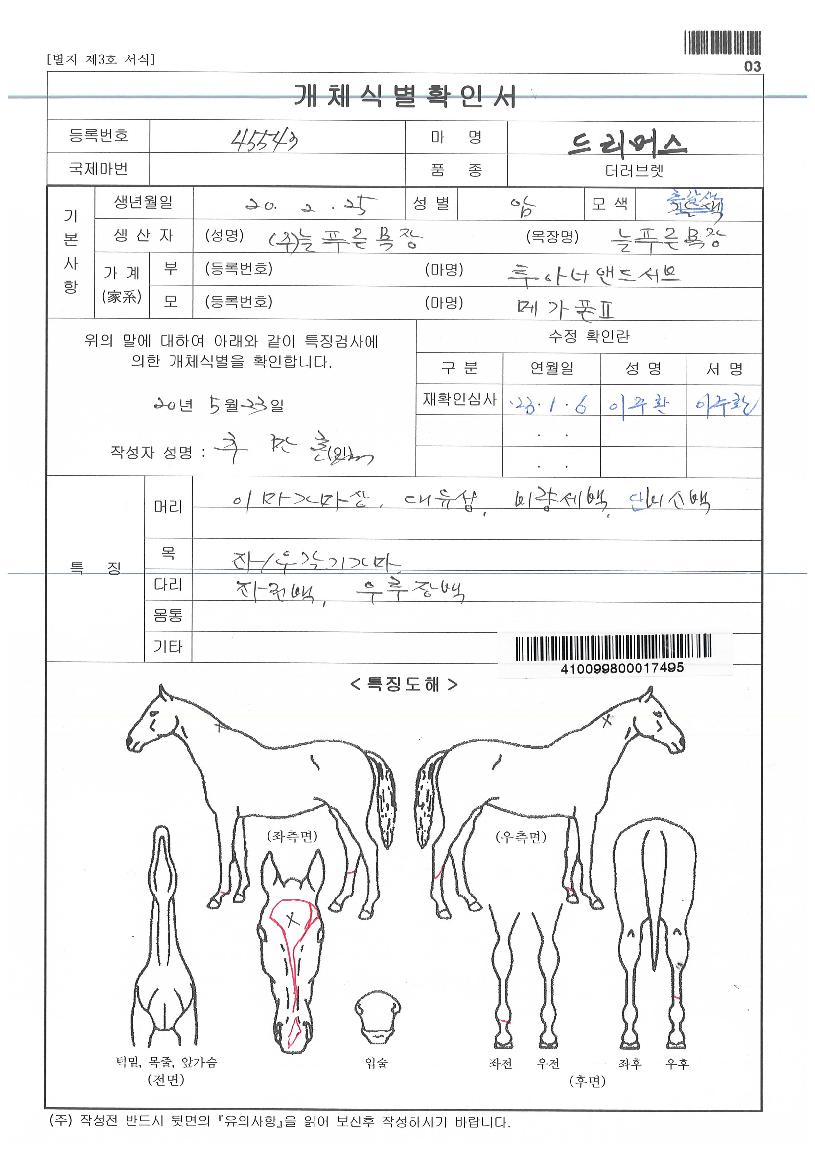 [별지 제3호 서식]
03
개체식별확인서
등록번호 45543 마 명 드리머스
국제마번 품 종 더러브렛
기본사항
생년월일 20. 2. 25 성 별 암 모 색
생 산 자 (성명) (주)늘푸른목장 (목장명) 늘푸른목장
가 계 (家系) 부 (등록번호) (마명) 투아너앤드서브
모 (등록번호) (마명) 메가폰Ⅱ
위의 말에 대하여 아래와 같이 특징검사에
의한 개체식별을 확인합니다.
20년 5월 23일
작성자 성명 : (인)
수정 확인란
구 분 연월일 성 명 서 명
재확인심사 '23. 1. 6 이주환 이주환
. .
. .
특 징
머리 이마가마상, 대유성, 비량세백, 단비소백
목 좌/우 각기가마
다리 좌전백, 우후장백
몸통
기타
410099800017495
< 특징도해 >
(좌측면) (우측면)
턱밑, 목줄, 앞가슴
(전면)
입술
좌전 우전 좌후 우후
(후면)
(주) 작성전 반드시 뒷면의 『유의사항』을 읽어 보신후 작성하시기 바랍니다.